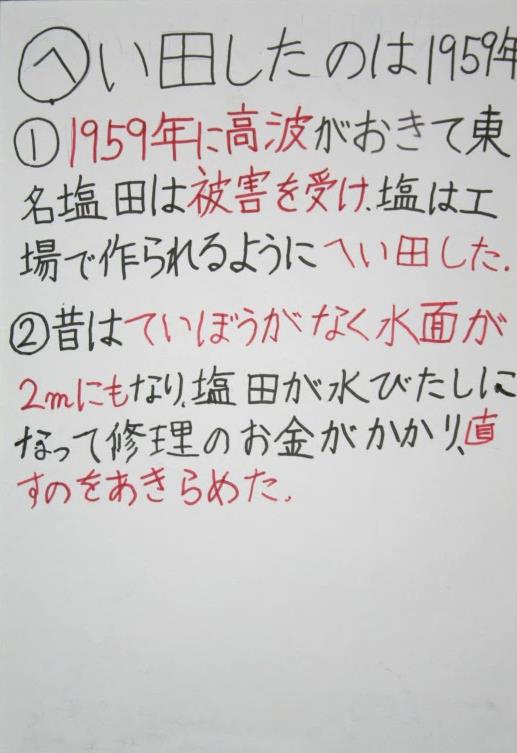 へい田したのは1959年
①1959年に高波がおきて東
名塩田は被害を受け、塩は工
場で作られるようにへい田した.
②昔はていぼうがなく水面が
2mにもなり、塩田が水びたしに
なって修理のお金がかかり、直
すのをあきらめた.